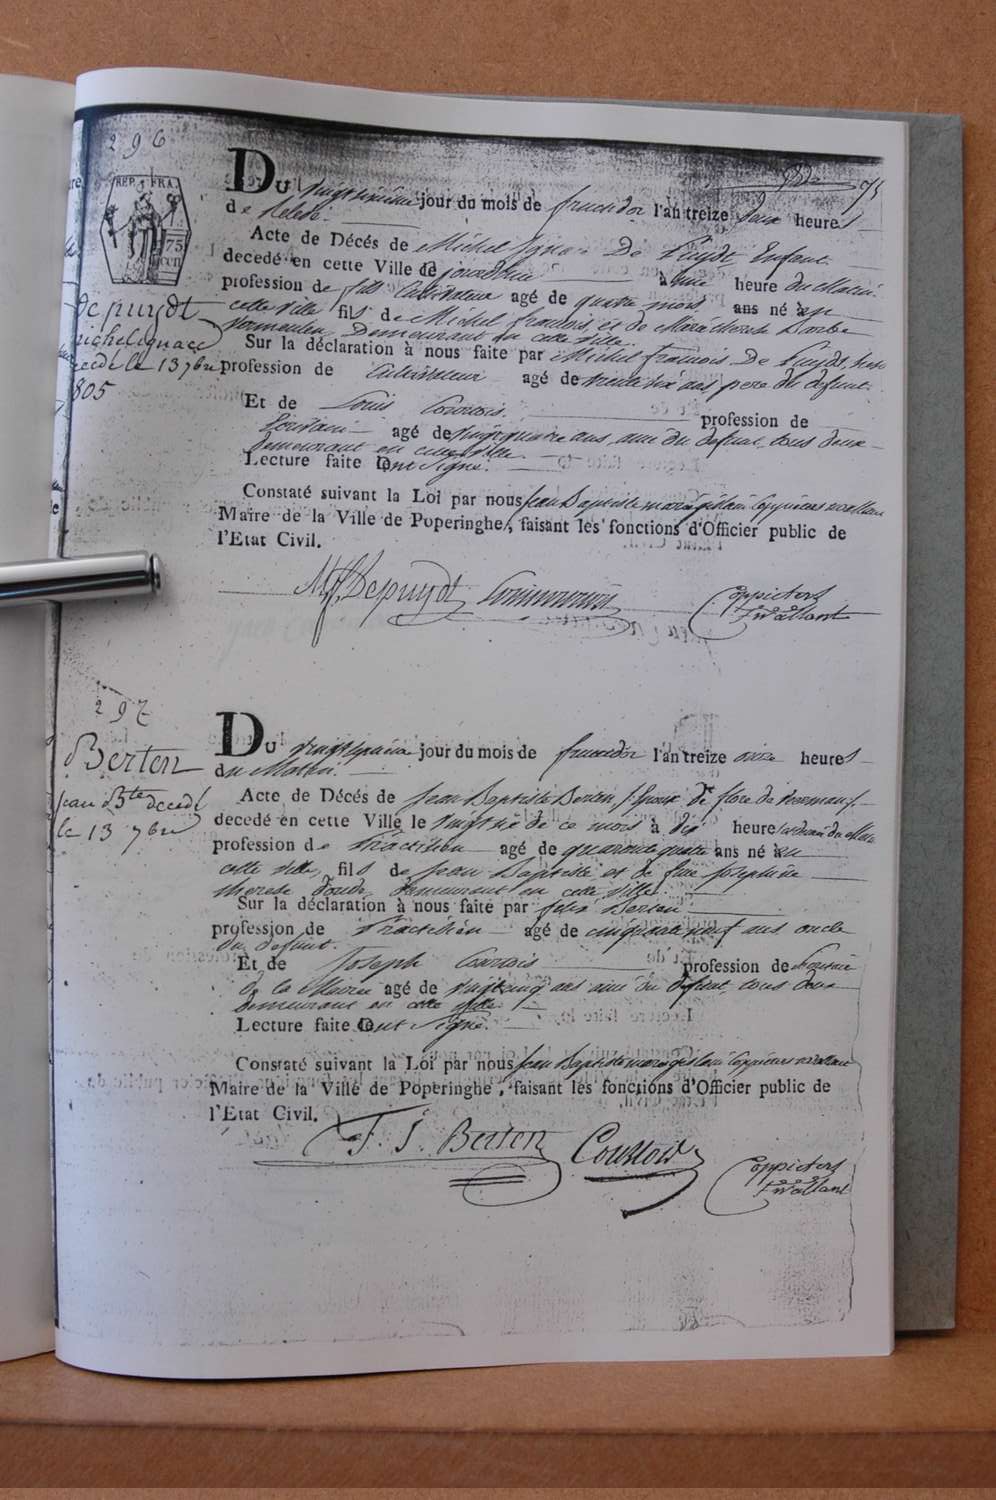 296
REP. FRA.
75
cen
depuydt
michel ignace
decede le 13 7bre
1805
Du vingt sixième jour du mois de fructidor l'an treize deux heures
de Relevé.
Acte de Décés de Michel Ignace De Puydt Enfant
decedé en cette Ville de jourdhui à une heure du Matin
profession de fils Cultivateur agé de quatre mois ans né en
cette ville fils de Michel francois, et de Marie therese Barbe
Vermeulen, Demeurant en cette ville.
Sur la déclaration à nous faite par Michel francois De Puydt,
profession de Cultivateur agé de trente six ans pere du defunt.
Et de Louis profession de
agé de vingt quatre ans, ami du defunt, tous deux
demeurant en cette ville
Lecture faite ont signé.
Constaté suivant la Loi par nous Jean Baptiste marie gislain Coppieters
Maire de la Ville de Poperinghe, faisant les fonctions d'Officier public de
l'Etat Civil.
M f Depuydt Coppieters
t'wallant
297
Berten
jean Bte decedé
le 13 7bre
Du vingt sixième jour du mois de fructidor l'an treize onze heures
du Matin.
Acte de Décés de Jean Baptiste Berten, Epoux de flore de
decedé en cette Ville le vingt six de ce mois à dix heures du Matin
profession de Practitien agé de quarante quatre ans né en
cette ville, fils de Jean Baptiste et de feue Josephine
therese demeurant en cette ville.
Sur la déclaration à nous faite par felix Berten
profession de Practitien agé de cinquante neuf ans oncle
du defunt.
Et de Joseph profession de
de la Mairie agé de vingt cinq ans ami du defunt, tous deux
demeurant en cette ville
Lecture faite ont signé.
Constaté suivant la Loi par nous Jean Baptiste marie gislain Coppieters
Maire de la Ville de Poperinghe, faisant les fonctions d'Officier public de
l'Etat Civil.
F. J. Berten Coppieters
t'wallant